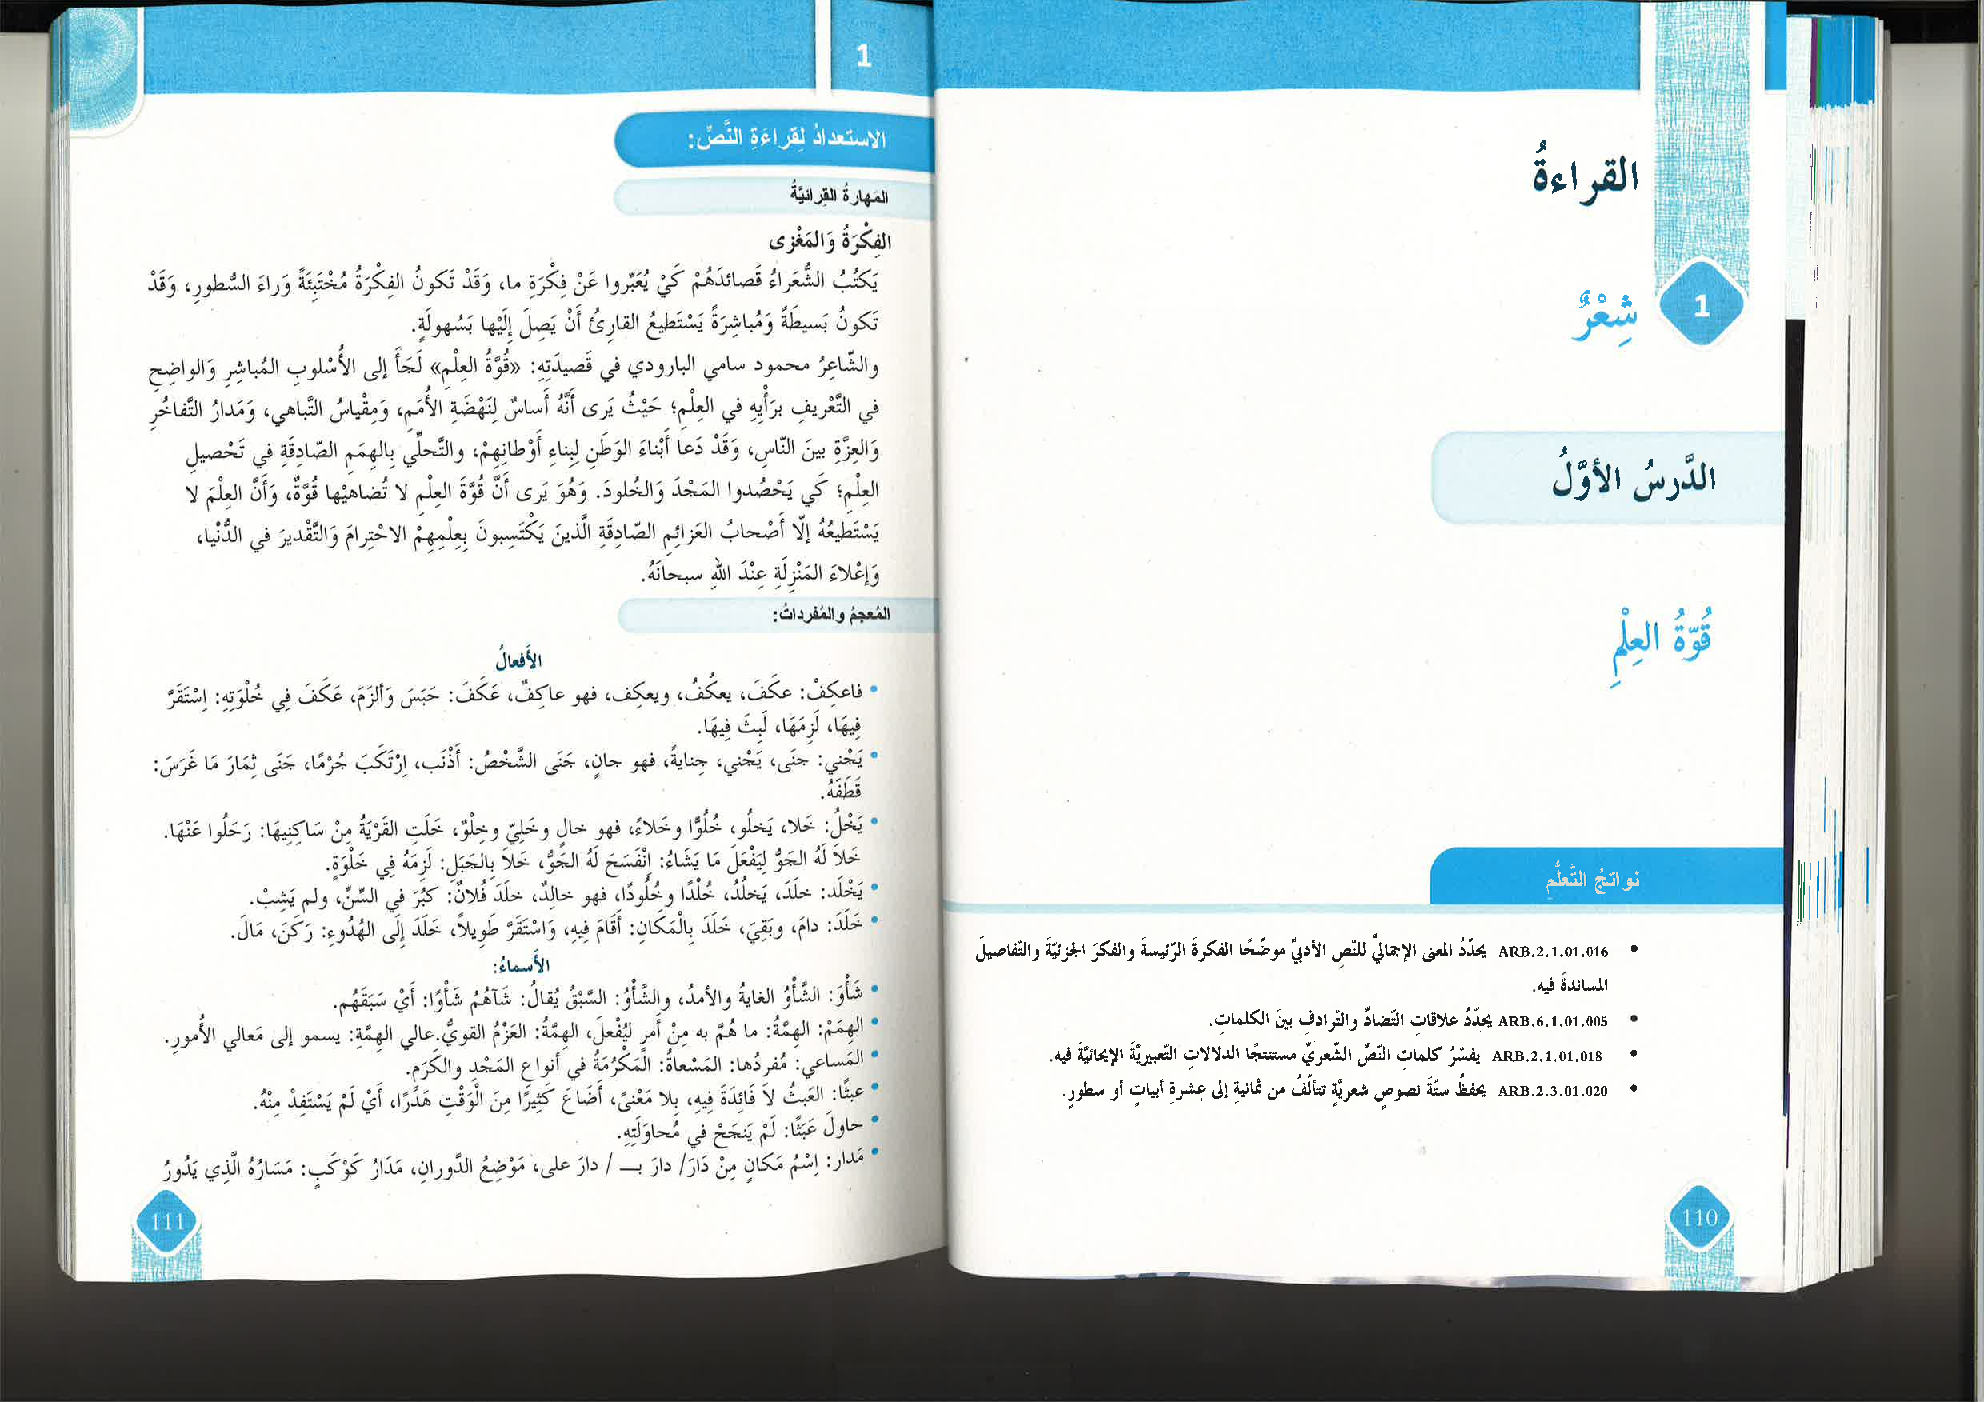 القراءةُ
1
شِعْرٌ
الدَّرسُ الأوَّلُ
قُوّةُ العِلْمِ
نواتجُ التَّعلُّمِ
• ARB.2.1.01.016 يحدّدُ المعنى الإجماليَّ للنّصِ الأدبيِّ موضّحًا الفكرةَ الرّئيسةَ والفكرَ الجزئيّةَ والتّفاصيلَ
المساندةَ فيه.
• ARB.6.1.01.005 يحدّدُ علاقاتِ التّضادِّ والتّرادفِ بينَ الكلماتِ.
• ARB.2.1.01.018 يفسّرُ كلماتِ النّصِّ الشّعريِّ مستنتجًا الدلالاتِ التّعبيريّةَ الإيحائيّةَ فيه.
• ARB.2.3.01.020 يحفظُ ستّةَ نصوصٍ شعريّةٍ تتألّفُ من ثمانيةِ إلى عشرةِ أبياتٍ أو سطورٍ.
110
1
الاستعدادُ لِقراءَةِ النَّصِّ:
المَهارةُ القِرائيَّةُ
الفِكْرَةُ وَالمَغْزى
يَكتُبُ الشُّعَراءُ قَصائدَهُمْ كَيْ يُعَبِّروا عَنْ فِكْرَةٍ ما، وَقَدْ تَكونُ الفِكْرَةُ مُخْتَبِئَةً وَراءَ السُّطورِ، وَقَدْ
تَكونُ بَسيطَةً وَمُباشِرَةً يَسْتَطيعُ القارِئُ أَنْ يَصِلَ إِلَيْها بَسُهولَةٍ.
والشّاعِرُ محمود سامي البارودي في قَصيدَتِهِ: «قُوَّةُ العِلْمِ» لَجَأَ إلى الأُسْلوبِ المُباشِرِ وَالواضِحِ
في التَّعْريفِ بِرَأْيِهِ في العِلْمِ؛ حَيْثُ يَرى أَنَّهُ أَساسٌ لِنَهْضَةِ الأُمَمِ، وَمِقْياسُ التَّباهي، وَمَدارُ التَّفاخُرِ
وَالعِزَّةِ بينَ النّاسِ، وَقَدْ دَعا أَبْناءَ الوَطَنِ لِبِناءِ أَوْطانِهِمْ، والتَّحلِّي بِالهِمَمِ الصّادِقَةِ في تَحْصيلِ
العِلْمِ؛ كَي يَحْصُدوا المَجْدَ وَالخُلودَ. وَهُوَ يَرى أَنَّ قُوَّةَ العِلْمِ لا تُضاهيْها قُوَّةٌ، وَأَنَّ العِلْمَ لا
يَسْتَطيعُهُ إلّا أَصْحابُ العَزائمِ الصّادِقَةِ الَّذينَ يَكْتَسِبونَ بِعِلْمِهِمْ الاحْتِرامَ وَالتَّقْديرَ في الدُّنْيا،
وَإعْلاءَ المَنْزِلَةِ عِنْدَ اللهِ سبحانَهُ.
المُعجمُ والمُفرداتُ:
الأَفعالُ
• فاعكِفْ: عكَفَ، يعكُفُ، ويعكِف، فهو عاكِفٌ، عَكَفَ: حَبَسَ وَألزَمَ، عَكَفَ فِي خُلْوَتِهِ: اِسْتَقَرَّ
فِيهَا، لَزِمَهَا، لَبِثَ فِيهَا.
• يَجْني: جنَى، يَجْني، جِنايةً، فهو جانٍ، جَنَى الشَّخْصُ: أَذْنَب، اِرْتَكَبَ جُرْمًا، جَنَى ثِمَارَ مَا غَرَسَ:
قَطَفَهُ.
• يَخْلُ: خَلا، يَخلُو، خُلُوًّا وخَلاءً، فهو خالٍ وخَلِيّ وخِلْوٌ، خَلَتِ القَرْيَةُ مِنْ سَاكِنِيهَا: رَحَلُوا عَنْهَا.
خَلاَ لَهُ الجَوُّ لِيَفْعَلَ مَا يَشَاءُ: اِنْفَسَحَ لَهُ الجَوُّ، خَلاَ بِالجَبَلِ: لَزِمَهُ فِي خَلْوَةٍ.
• يَخْلَد: خلَدَ، يَخلُدُ، خُلْدًا وخُلُودًا، فهو خالِدٌ، خلَدَ فُلانٌ: كبُرَ في السِّنِّ، ولم يَشِبْ.
• خَلَدَ: دامَ، وبَقِيَ، خَلَدَ بِالْمَكَانِ: أَقَامَ فِيهِ، وَاسْتَقَرَّ طَوِيلاً، خَلَدَ إِلَى الهُدُوءِ: رَكَنَ، مَالَ.
الأَسماءُ:
• شَأْوَ: الشَّأْوُ الغايةُ والأمدُ، والشَّأْوُ: السَّبْقُ يُقالُ: شَآهُمْ شَأْوًا: أَيْ سَبَقَهُم.
• الهِمَمْ: الهِمَّةُ: ما هُمَّ به مِنْ أَمرٍ ليُفْعلَ، الهِمَّةُ: العَزْمُ القويُّ.عالي الهِمَّةِ: يسمو إلى مَعالي الأُمورِ.
• المَساعي: مُفردُها: المَسْعاةُ: الْمَكْرُمَةُ في أَنواعِ المَجْدِ والكَرَمِ.
• عبثًا: العَبثُ لاَ فَائِدَةَ فِيهِ، بِلا مَعْنىً، أَضَاعَ كَثِيرًا مِنَ الْوَقْتِ هَدْرًا، أَيْ لَمْ يَسْتَفِدْ مِنْهُ.
• حاولَ عَبَثًا: لَمْ يَنجَحْ في مُحاوَلَتِهِ.
• مَدار: اِسْمُ مَكانٍ مِنْ دَارَ/ دارَ بـ / دارَ على، مَوْضِعُ الدَّورانِ، مَدَارُ كَوْكَبٍ: مَسَارُهُ الَّذِي يَدُورُ
111